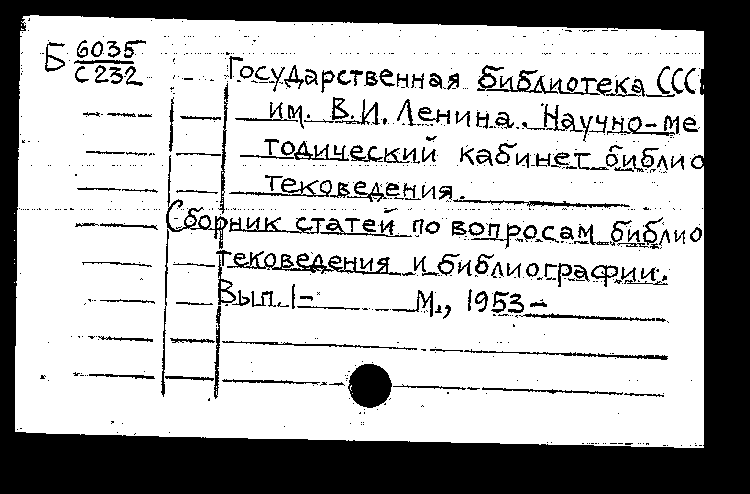 Б 6035
С 232
Государственная библиотека СССР
им. В.И. Ленина. Научно-ме
тодический кабинет библио
тековедения.
Сборник статей по вопросам библио
тековедения и библиографии.
Вып. 1- М., 1953-